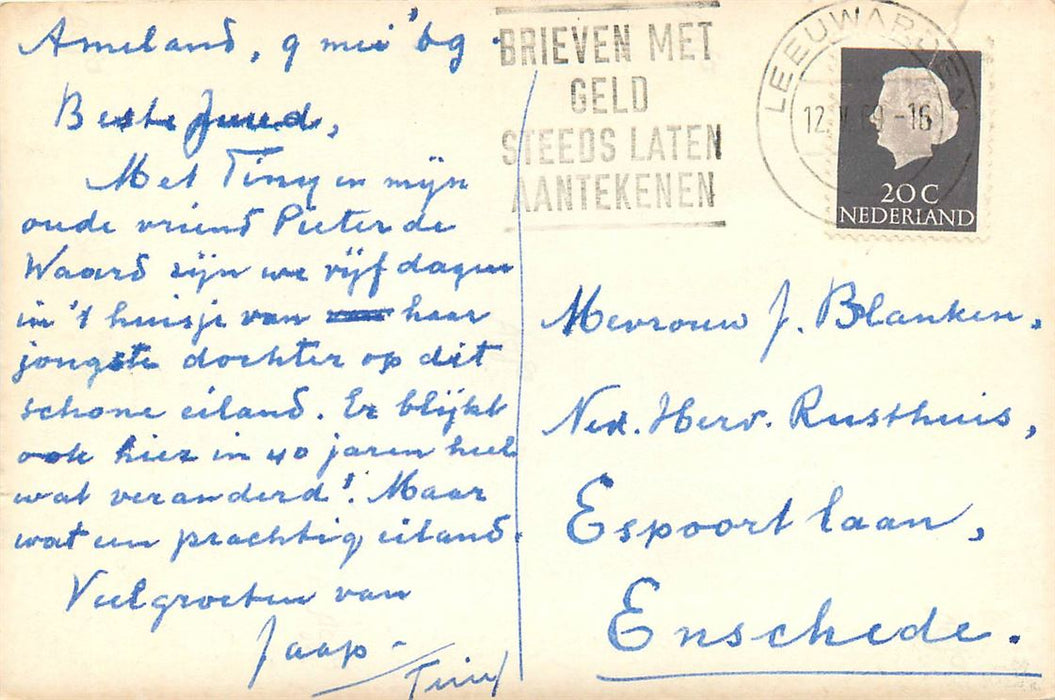 Ameland, 9 mei '69.
Beste
Met Tiny en mijn
oude vriend Pieter de
Waard zijn we vijf dagen
in 't huisje van haar
jongste dochter op dit
schone eiland. Er blijkt
ook hier in 40 jaren heel
wat veranderd! Maar
wat een prachtig eiland.
Veel groeten van
Jaap -
Tiny
BRIEVEN MET
GELD
STEEDS LATEN
AANTEKENEN
LEEUWARDEN
12. V 69 -16
20 C
NEDERLAND
Mevrouw J. Blanken,
Ned. Herv. Rusthuis,
Espoortlaan,
Enschede.